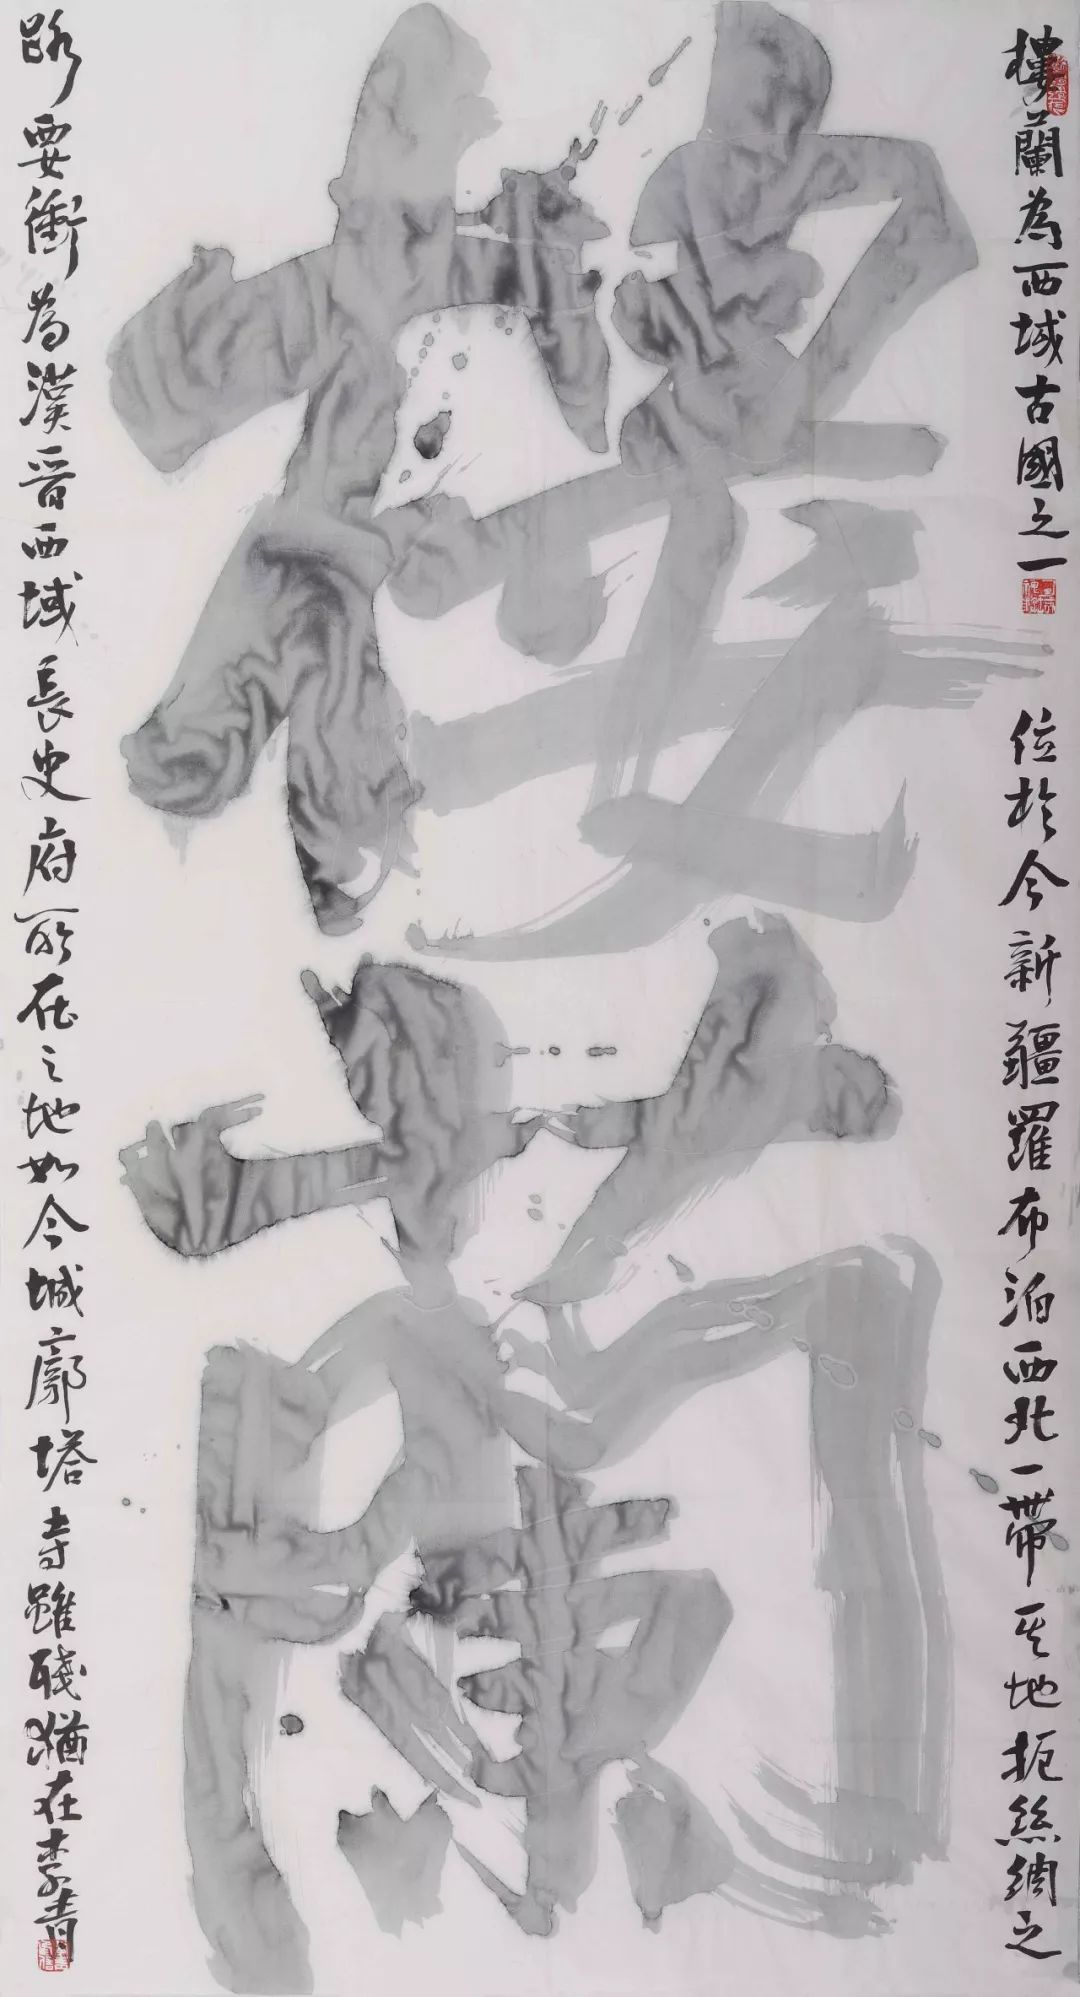 樓蘭
樓蘭為西域古國之一
位於今新疆羅布泊西北一帶其地扼絲綢之
路要衝為漢晉西域長史府所在之地如今城廓塔寺雖殘猶在李青